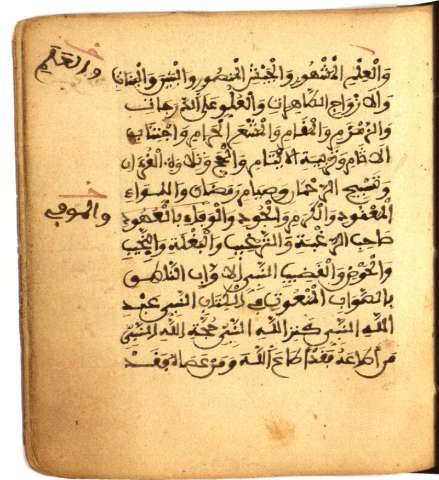 والعلم
وَالْعِلْمِ الْمَشْهُورِ وَالْجَيْشِ الْمَنْصُورِ وَالْبَنِينَ وَالْبَنَاتِ
وَالازْوَاجِ الطَّاهِرَاتِ وَالْعُلُوِّ عَلَى الدَّرَجَاتِ
وَالزَّمْزَمِ وَالْمَقَامِ وَالْمَشْعَرِ الْحَرَامِ وَاجْتِنَابِ
الاثَامِ وَتَرْبِيَةِ الايْتَامِ وَالْحَجِّ وَتِلَاوَةِ الْقُرْءَانِ
وَتَسْبِيحِ الرَّحْمَنِ وَصِيَامِ رَمَضَانَ وَاللِّوَاءِ
الْمَعْقُودِ وَالْكَرَمِ وَالْجُودِ وَالْوَفَاءِ بِالْعُهُودِ
صَاحِبِ الرَّغْبَةِ وَالتَّرْغِيبِ وَالْبَغْلَةِ وَالنَّجِيبِ
وَالْحَوْضِ وَالْقَضِيبِ النَّبِيِّ الاوَّابِ النَّاطِقِ
بِالصَّوَابِ الْمَنْعُوتِ فِي الْكِتَابِ النَّبِيِّ عَبْدِ
اللَّهِ النَّبِيِّ كَنْزِ اللَّهِ النَّبِيِّ حُجَّةِ اللَّهِ النَّبِيِّ
مَنْ أَطَاعَهُ فَقَدْ أَطَاعَ اللَّهَ وَمَنْ عَصَاهُ فَقَدْ